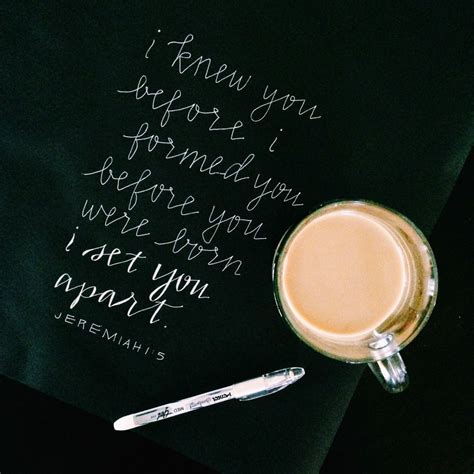 i knew you
before i
formed you
before you
were born
i set you
apart.
JEREMIAH 1:5
MED